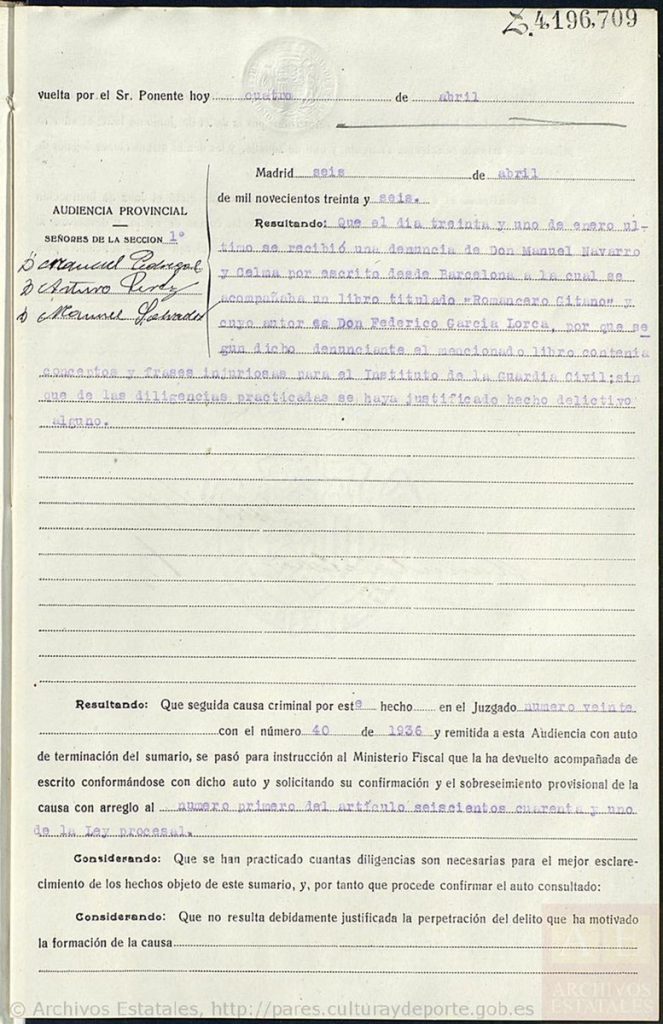 Z.4,196,709
vuelta por el Sr. Ponente hoy cuatro de abril
Madrid seis de abril
de mil novecientos treinta y seis.
AUDIENCIA PROVINCIAL
SEÑORES DE LA SECCION 1ª
D Manuel Pedregal
D Arturo Perez
D Manuel Salvador
Resultando: Que el dia treinta y uno de enero ul
timo se recibió una denuncia de Don Manuel Navarro
y Celma por escrito desde Barcelona a la cual se
acompañaba un libro titulado "Romancero Gitano" y
cuyo autor es Don Federico Garcia Lorca, por que se
gun dicho denunciante el mencionado libro contenia
conceptos y frases injuriosas para el Instituto de la Guardia Civil;sin
que de las diligencias practicadas se haya justificado hecho delictivo
alguno.
Resultando: Que seguida causa criminal por este hecho en el Juzgado numero veinte
con el número 40 de 1936 y remitida a esta Audiencia con auto
de terminación del sumario, se pasó para instrucción al Ministerio Fiscal que la ha devuelto acompañada de
escrito conformándose con dicho auto y solicitando su confirmación y el sobreseimiento provisional de la
causa con arreglo al numero primero del artículo seiscientos cuarenta y uno
de la Ley procesal.
Considerando: Que se han practicado cuantas diligencias son necesarias para el mejor esclare-
cimiento de los hechos objeto de este sumario, y, por tanto que procede confirmar el auto consultado:
Considerando: Que no resulta debidamente justificada la perpetración del delito que ha motivado
la formación de la causa
AE
ARCHIVOS
ESTATALES
© Archivos Estatales, http://pares.culturaydeporte.gob.es